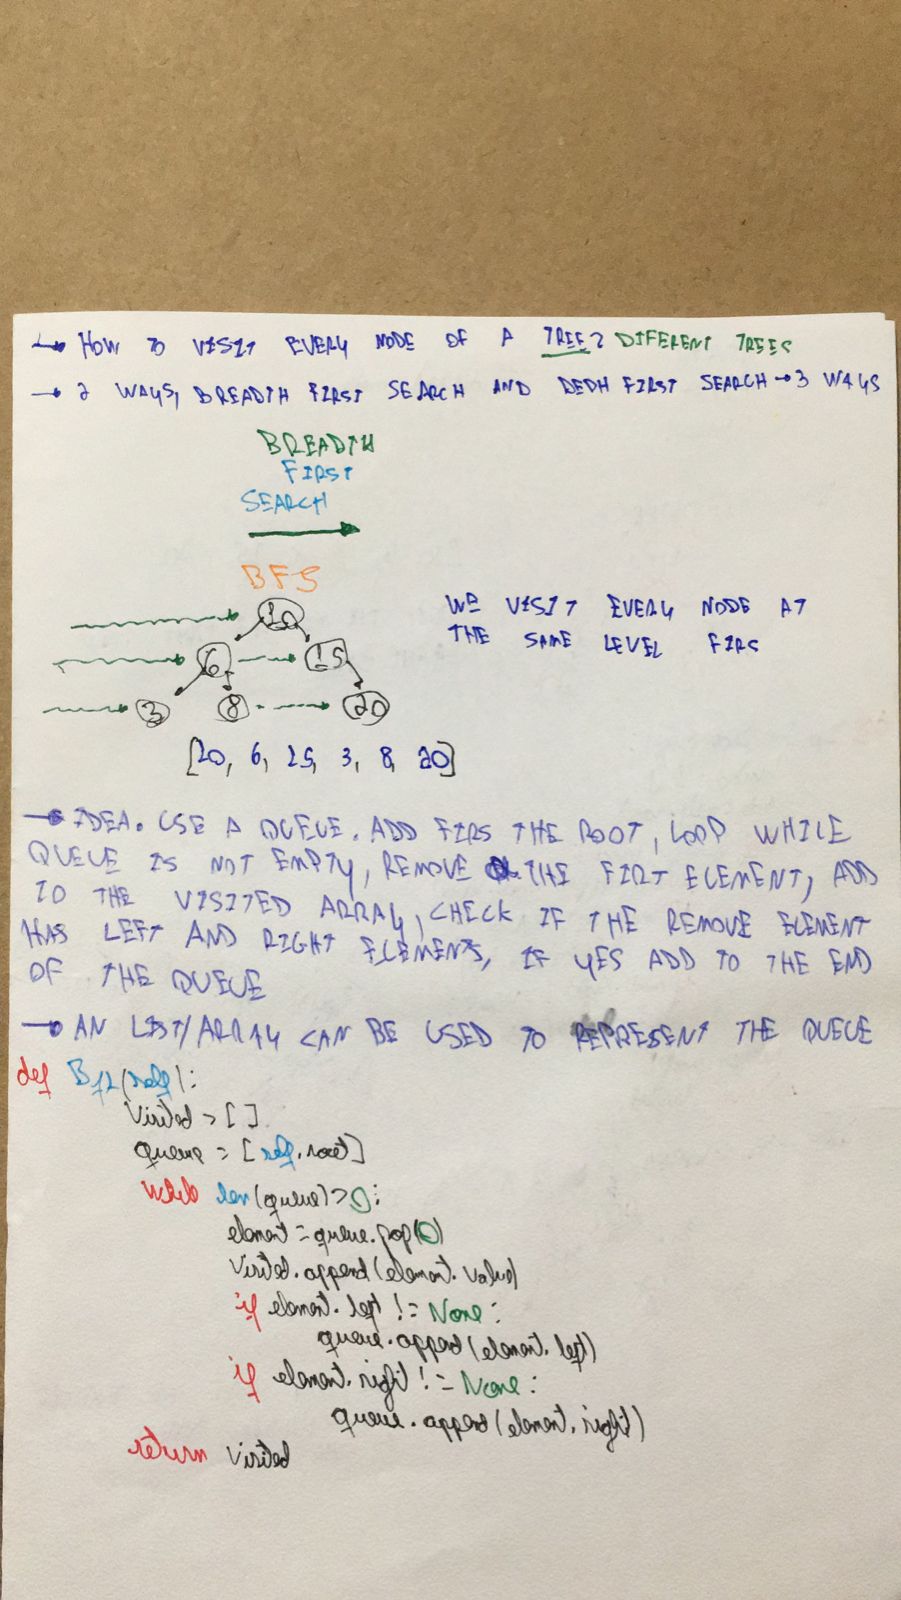 → HOW TO VISIT EVERY NODE OF A TREE? DIFFERENT TREES
→ 2 WAYS, BREADTH FIRST SEARCH AND DEDH FIRST SEARCH → 3 WAYS
BREADTH
FIRST
SEARCH
BFS
10
WE VISIT EVERY NODE AT
THE SAME LEVEL FIRS
6 15
3 8 20
[10, 6, 15, 3, 8, 20]
→ IDEA. USE A QUEUE. ADD FIRS THE ROOT, LOOP WHILE
QUEUE IS NOT EMPTY, REMOVE THE FIRT ELEMENT, ADD
TO THE VISITED ARRAY, CHECK IF THE REMOVE ELEMENT
HAS LEFT AND RIGHT ELEMENTS, IF YES ADD TO THE END
OF THE QUEUE
→ AN LIST/ARRAY CAN BE USED TO REPRESENT THE QUEUE
def Bfs(self):
visited = []
queue = [self.root]
while len(queue)>0:
element = queue.pop(0)
visited.append(element.value)
if element.left != None:
queue.append(element.left)
if element.right != None:
queue.append(element.right)
return visited